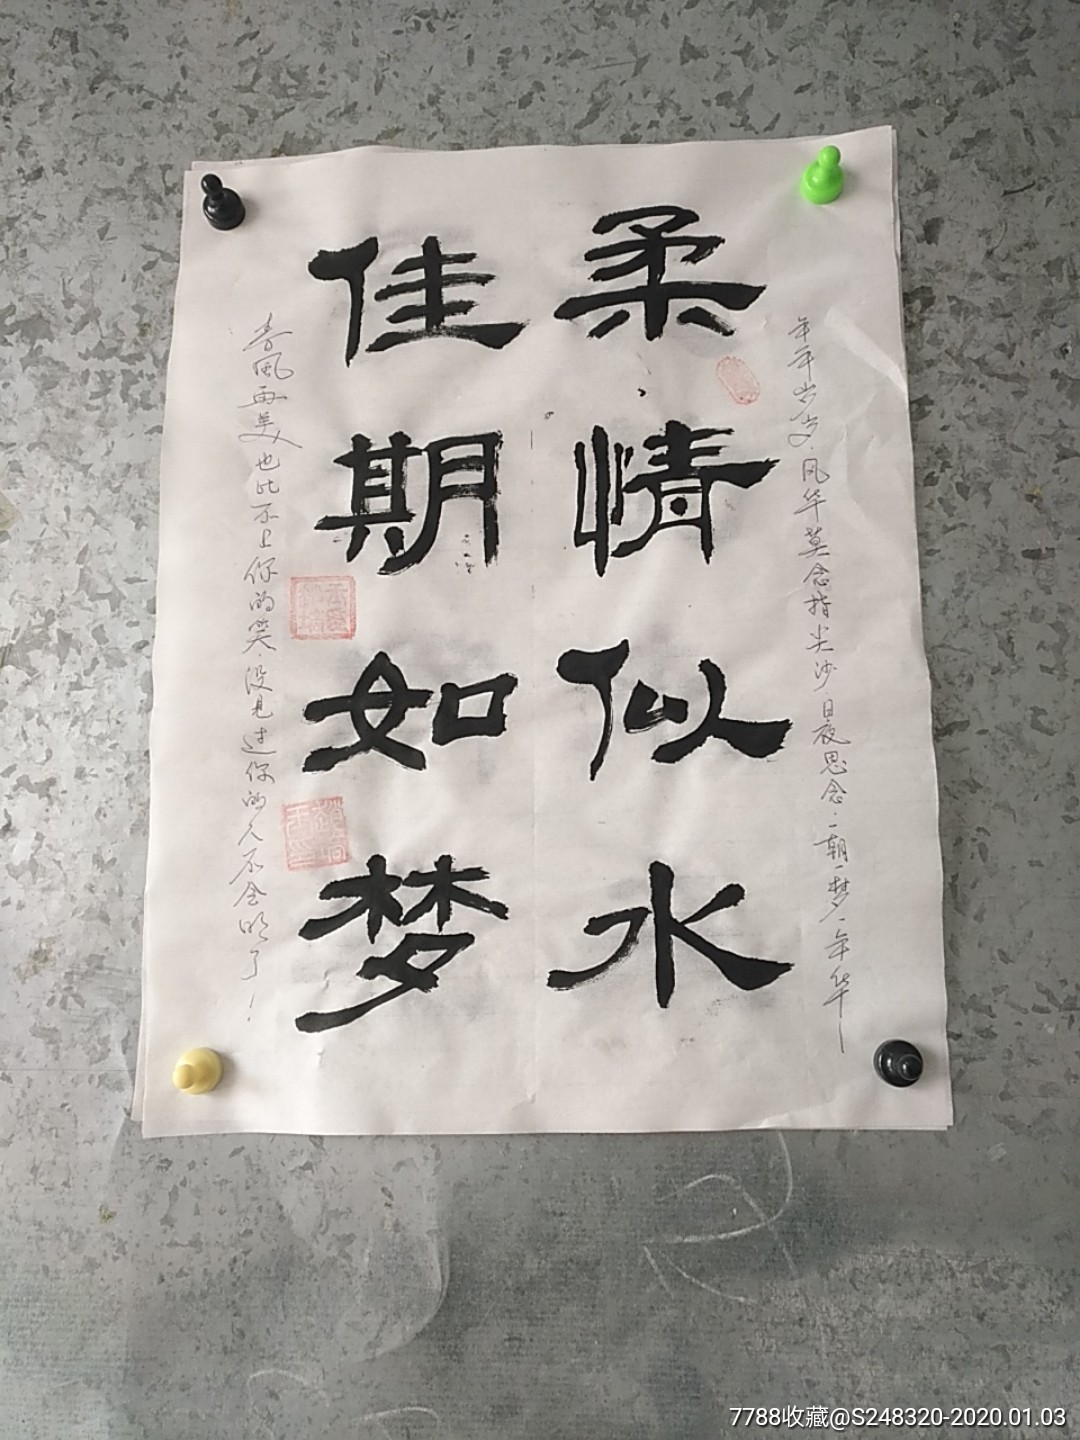 柔情似水
佳期如梦
年年岁岁,风华莫念指尖沙,日夜思念,一朝一梦一年华
春风再美也比不上你的笑,没见过你的人不会明了!
7788收藏@S248320-2020.01.03